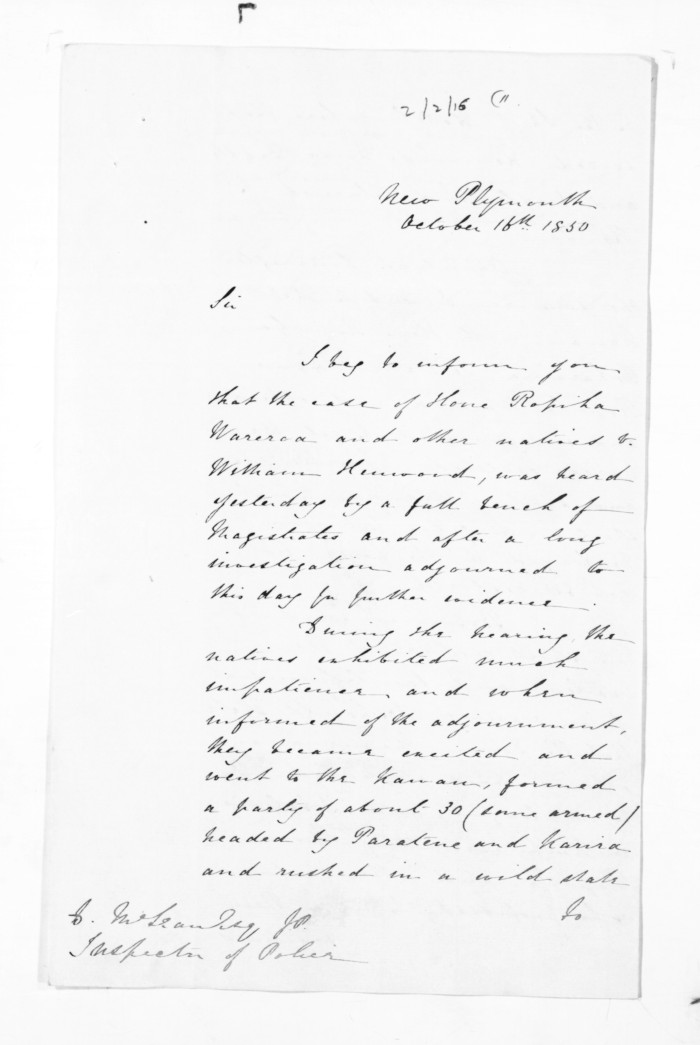 2/2/16
New Plymouth
October 16th 1850
Sir
I beg to inform you
that the case of Hone Ropiha
Wareroa and other natives v.
William Henwood, was heard
yesterday by a full bench of
Magistrates and after a long
investigation adjourned to
this day for further evidence.
During the hearing, the
natives exhibited much
impatience, and when
informed of the adjournment,
they became excited and
went to the Kawau, formed
a party of about 30 (some armed)
headed by Paratene and Karira
and rushed in a wild state
to
D. McLean Esq J.P.
Inspector of Police